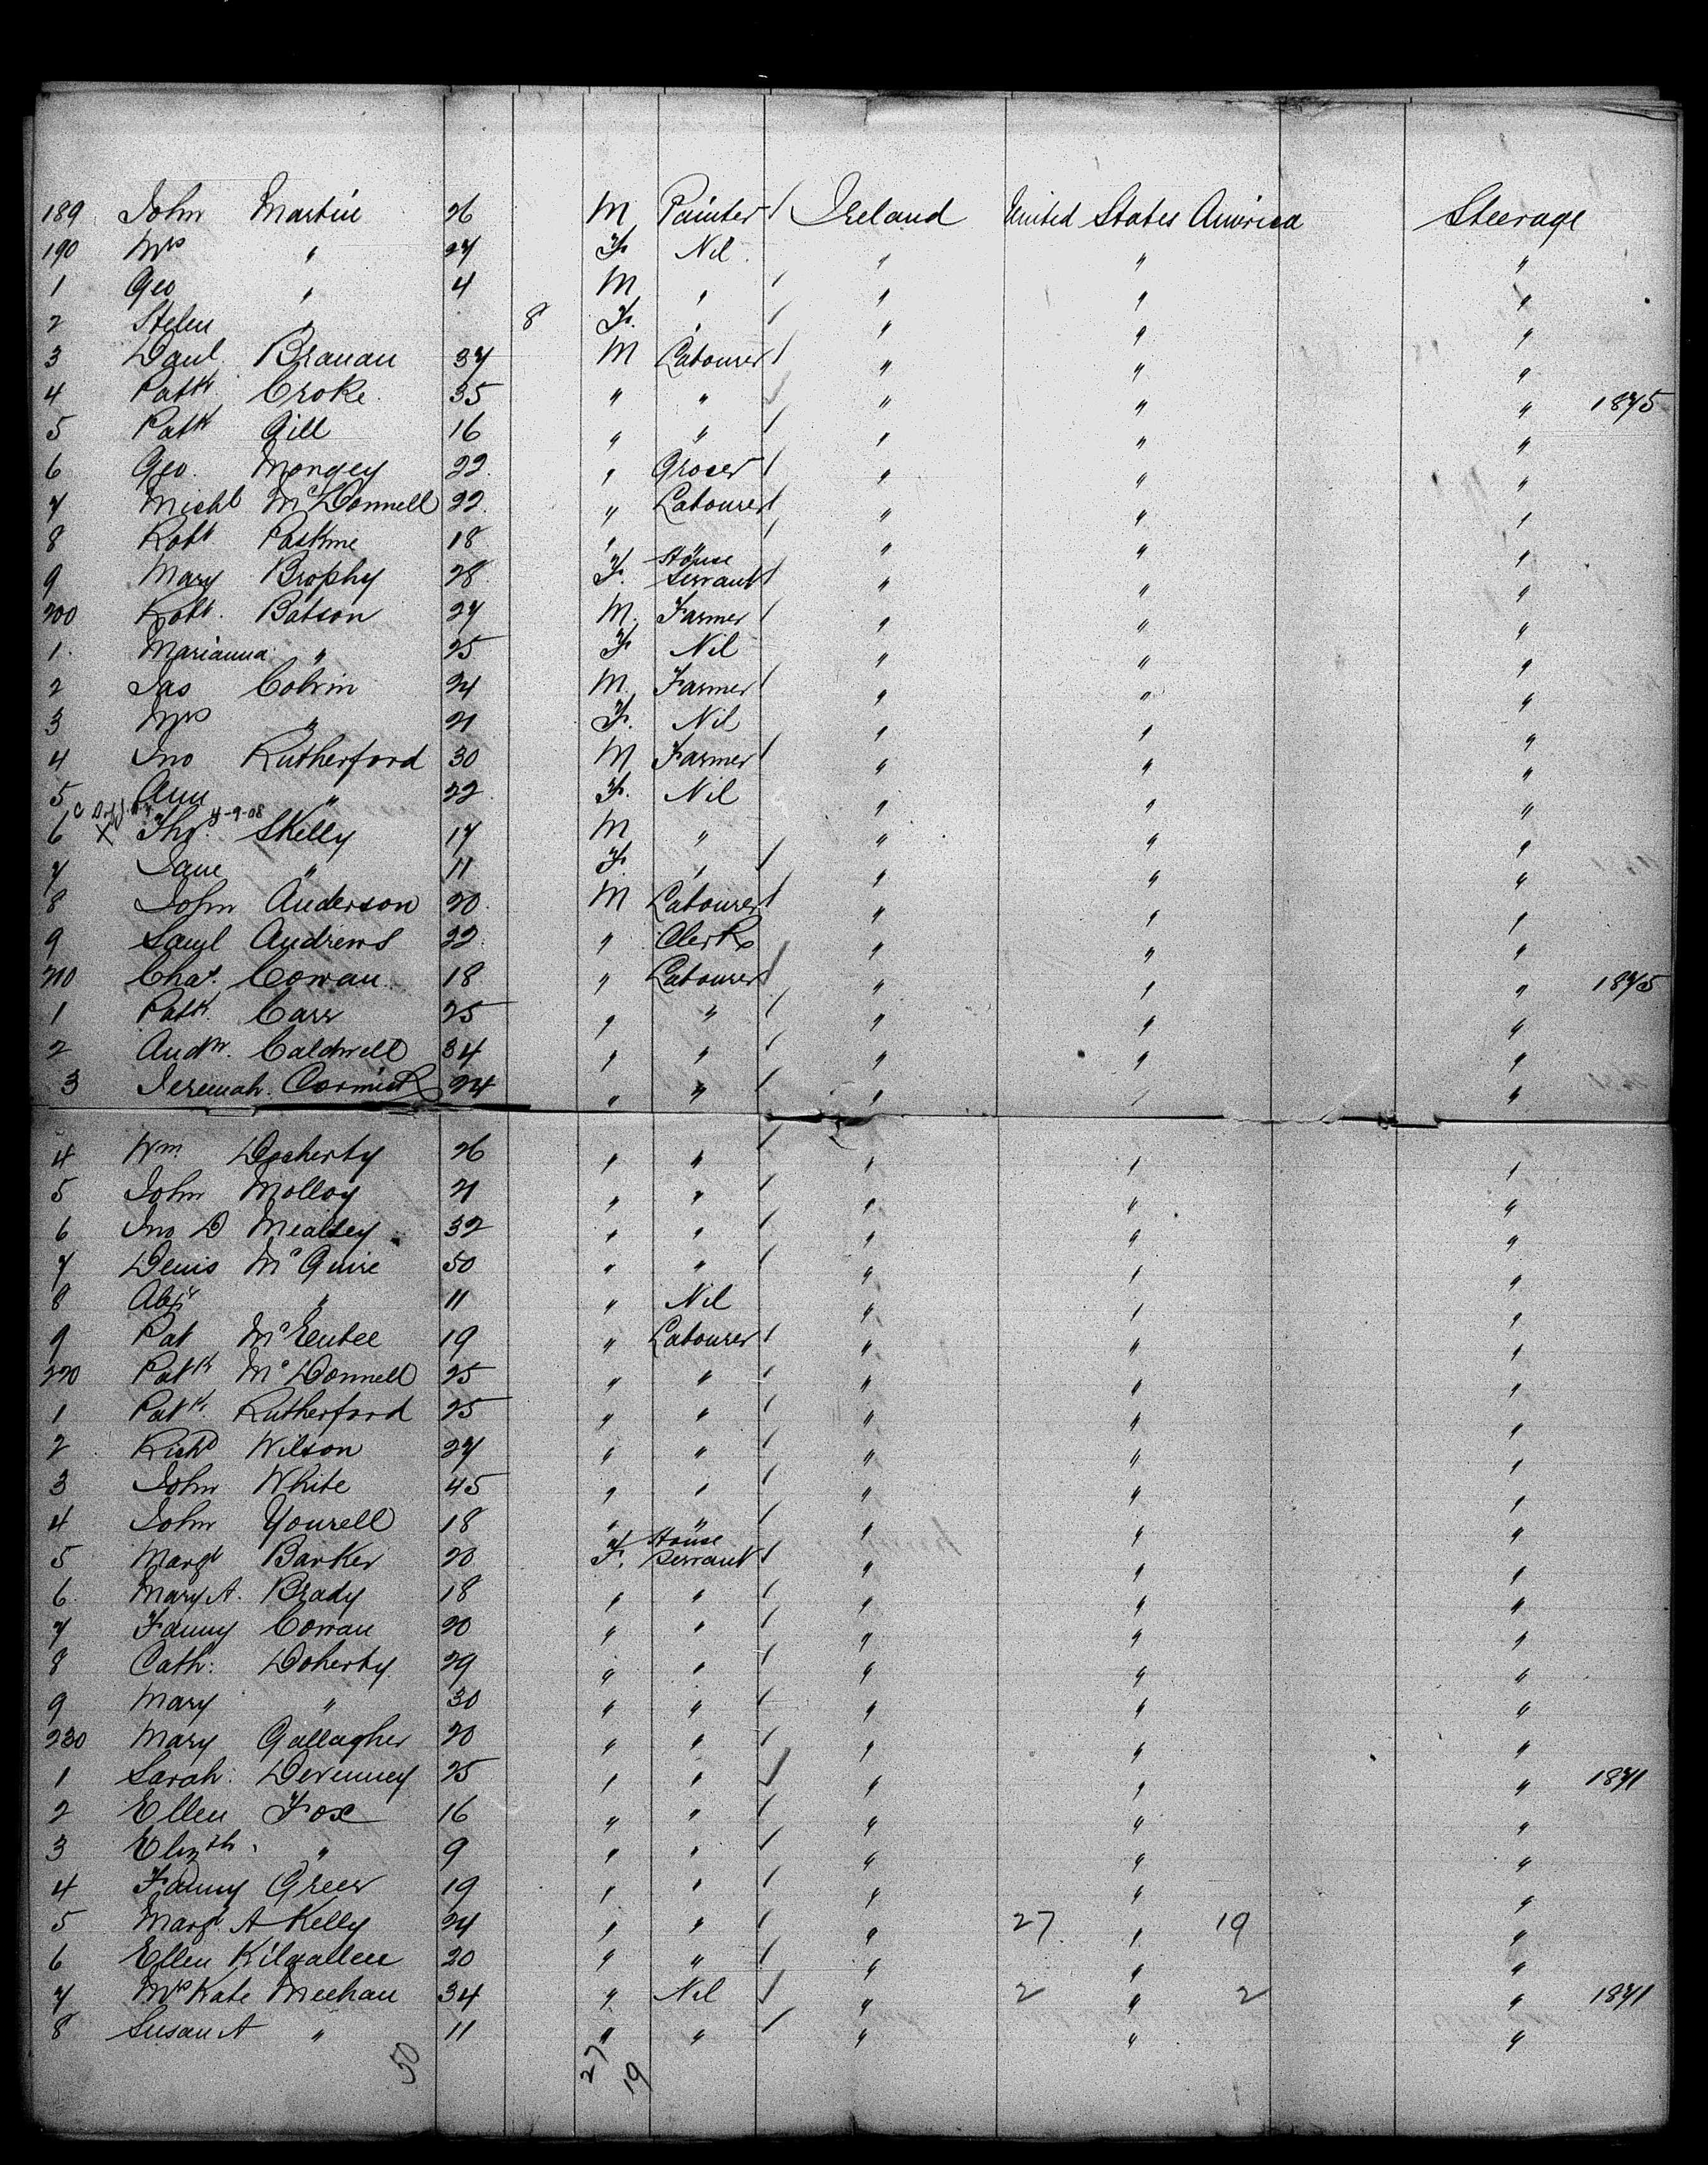 189 John Martin 26 M Painter Ireland United States America Steerage
190 Mrs " 27 F. Nil " " "
1 Geo " 4 M " " " "
2 Helen " 8 F. " " " "
3 Danl Branan 37 M Labourer " " "
4 Patk. Croke 35 " " " " " 1875
5 Patk Gill 16 " " " " "
6 Geo. Mongey 22 " Grocer " " "
7 Michl McDonnell 22 " Labourer " " "
8 Robt 18 " " " " "
9 Mary Brophy 28 F. House Servant " " "
200 Robt. Batson 27 M. Farmer " " "
1 Marianna " 25 F Nil " " "
2 Jas Colvin 24 M. Farmer " " "
3 Mrs " 21 F. Nil " " "
4 Jno Rutherford 30 M Farmer " " "
5 Ann " 22 F. Nil " " "
4-9-08
6 X Tho. Skelly 17 M " " " "
7 Jane " 11 F. " " " "
8 John Anderson 20 M Labourer " " "
9 Saml Andrews 22 " Clerk " " "
210 Chas. Cowan 18 " Labourer " " " 1875
1 Patk. Carr 25 " " " " "
2 Andw. Caldwell 34 " " " " "
3 Jeremah. Cormick 24 " " " " "
4 Wm. Docherty 26 " " " " "
5 John Molloy 21 " " " " "
6 Jno D 32 " " " " "
7 Denis McGuire 50 " " " " "
8 Alexr " 11 " Nil " " "
9 Pat McEntee 19 " Labourer " " "
220 Patk McDonnell 25 " " " " "
1 Patk. Rutherford 25 " " " " "
2 Richd Wilson 27 " " " " "
3 John White 45 " " " " "
4 John Yourell 18 " " " " "
5 Margt Barker 20 F. House Servant " " "
6 Mary A. Brady 18 " " " " "
7 Fanny Cowan 20 " " " " "
8 Cath: Doherty 29 " " " " "
9 Mary " 30 " " " " "
230 Mary Gallagher 20 " " " " "
1 Sarah: Devenney 25 " " " " " 1871
2 Ellen Fox 16 " " " " "
3 Elizth. " 9 " " " " "
4 Fanny Greer 19 " " " " "
5 Margt. A Kelly 24 " " " 27 " 19 "
6 Ellen Kilgallen 20 " " " " "
7 Mrs Kate Meehan 34 " Nil " 2 " 2 " 1871
8 Susan A " 11 " " " " "
50 27 19